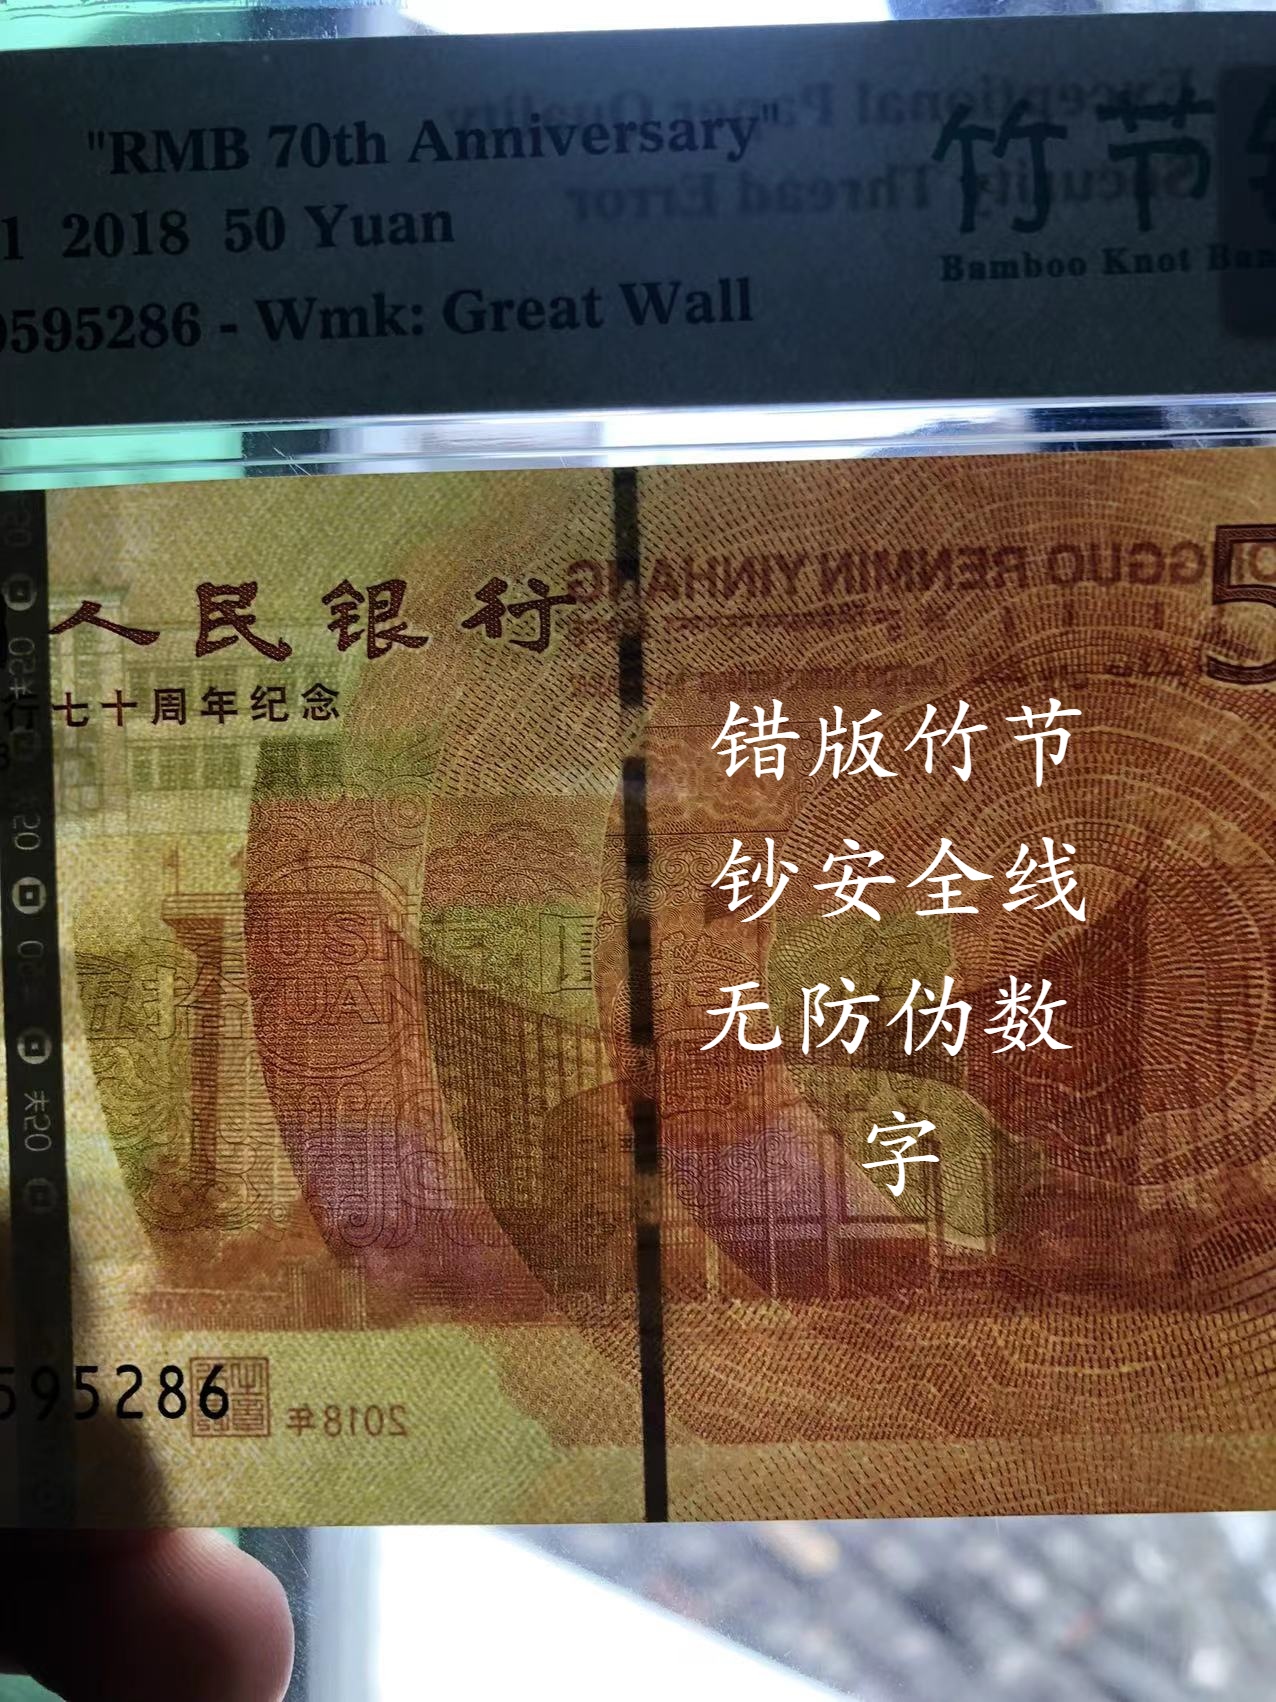 "RMB 70th Anniversary"
1 2018 50 Yuan
595286 - Wmk: Great Wall
Exceptional Paper Quality
Security Thread Error
竹节
Bamboo Knot Ban
人民银行
行七十周年纪念
GGUO RENMIN YINHANG
5
错版竹节
钞安全线
无防伪数
字
595286
2018年